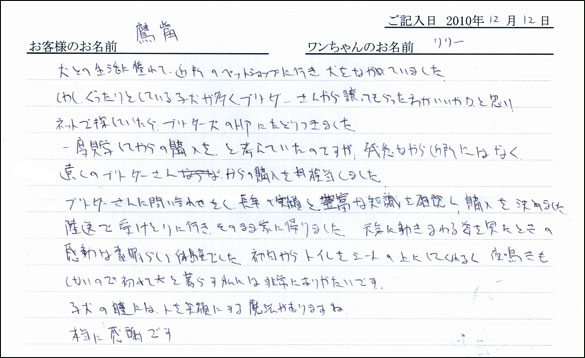 ご記入日 2010年12月12日
お客様のお名前 鷹觜 ワンちゃんのお名前 リリー
犬との生活に憧れて、近所のペットショップに行き犬をながめていました
しかし、ぐったりとしている子犬が多くブリーダーさんから譲ってもらった方がいいかなと思い
ネットで探していたら、ブリーダーズのHPにたどりつきました
一度見学してからの購入をと考えていたのですが、残念ながら近所にはなく
遠くのブリーダーさんからの購入を検討しました
ブリーダーさんに問い合わせをし、長年の実績と豊富な知識を確認し、購入を決めました
陸送で受けとりに行き、そのまま家に帰りました 元気に動きまわる姿を見たときの
感動は素晴らしい体験でした 初日からトイレをシートの上にしてくれるし、夜鳴きも
しないので初めて犬と暮らす私には非常にありがたいです。
子犬の瞳には、人を笑顔にする魔法がありますね
本当に感謝です